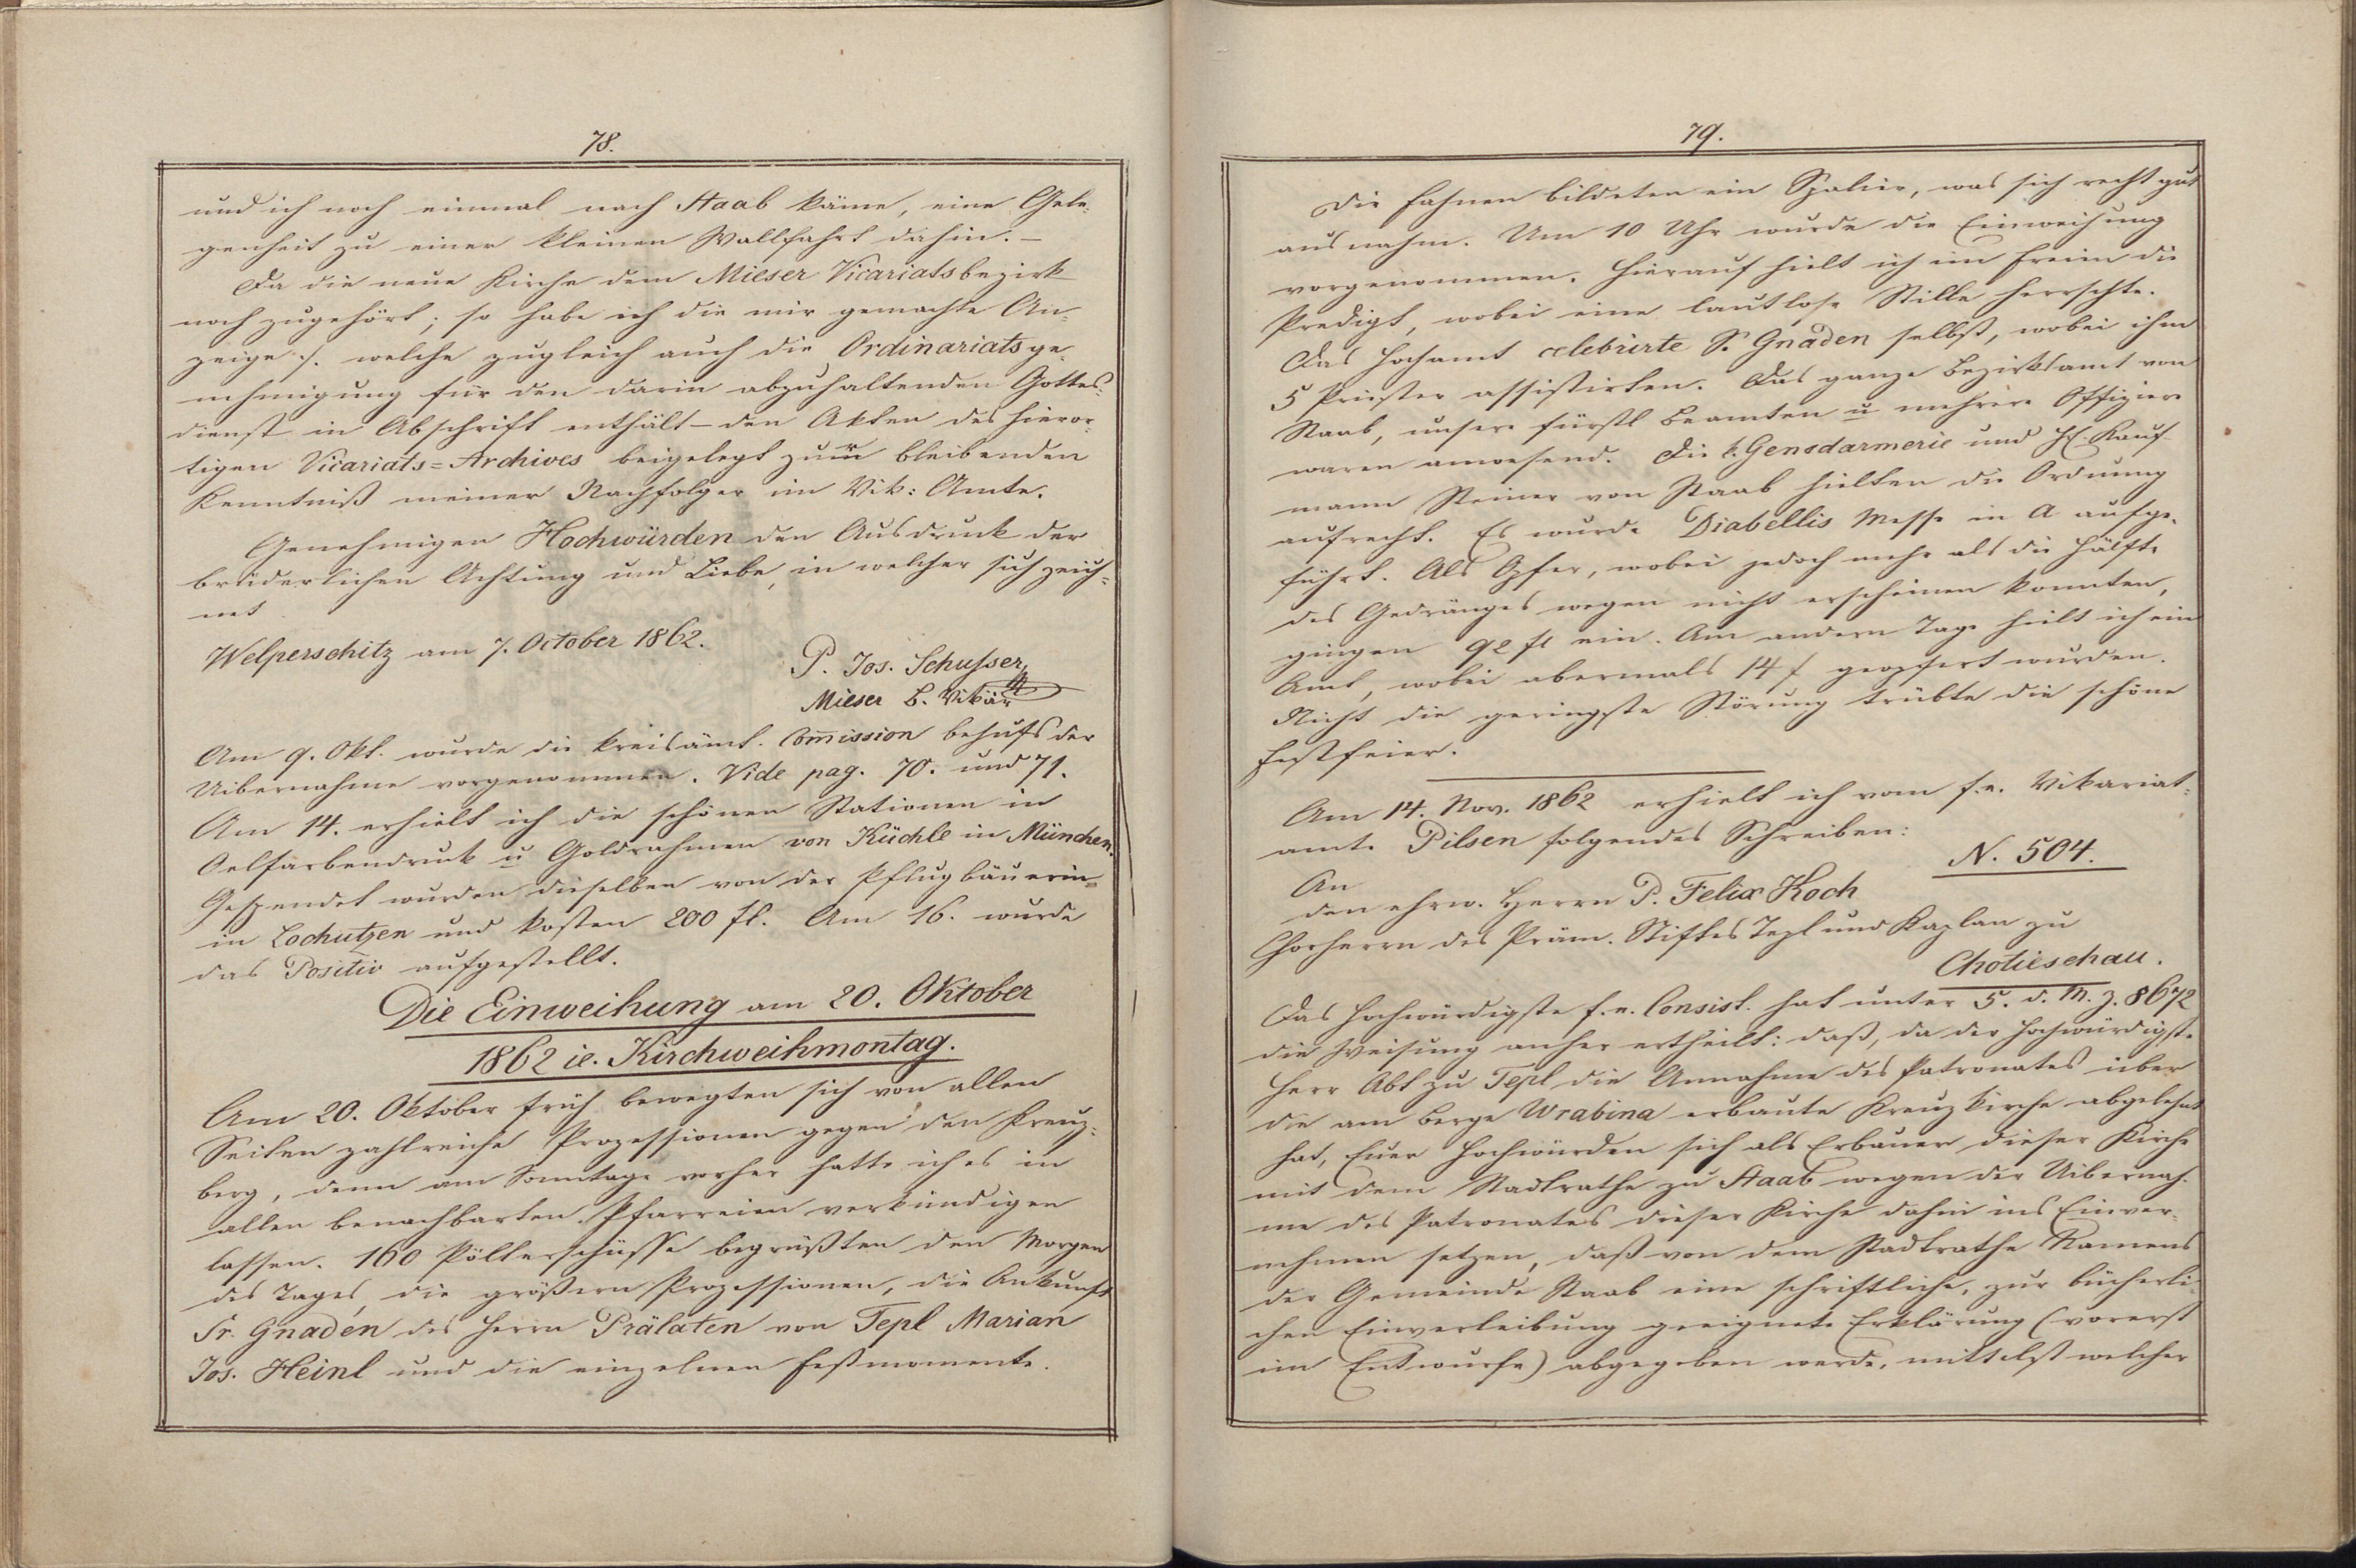 78.
und ich noch einmal nach Staab käme, eine Gele-
genheit zu einer kleinen Wallfahrt dahin. –
Da die neue Kirche dem Mieser Vicariatsbezirk
noch zugehört; so habe ich die mir gemachte An-
zeige ./. welche zugleich auch die Ordinariatsge-
nehmigung für den darin abzuhaltenden Gottes-
dienst in Abschrift enthält – den Akten des hieror-
tigen Vicariats=Archives beigelegt zur bleibenden
Kenntniß meiner Nachfolger im Vik: Amte.
Genehmigen Hochwürden den Ausdruck der
brüderlichen Achtung und Liebe, in welcher sich zeich-
net
Welperschitz am 7. October 1862.
P. Jos. Schusser
Mieser B. Vikär
Am 9. Okt. wurde die kreisämt. Com̄ission behufs der
Uibernahme vorgenommen. Vide pag. 70. und 71.
Am 14. erhielt ich die schönen Stationen in
Oelfarbendruck u Goldrahmen von Küchle in München.
Gespendet wurden dieselben von der Pflugbäuerin
in Lochutzen und kosten 200 fl. Am 16. wurde
das Positiv aufgestellt.
Die Einweihung am 20. Oktober
1862 ie. Kirchweihmontag.
Am 20. Oktober früh bewegten sich von allen
Seiten zahlreiche Prozessionen gegen den Kreuz-
berg, denn am Sonntage vorher hatte ich es in
allen benachbarten Pfarreien verkündigen
lassen. 160 Pöllerschüsse begrüßten den Morgen
des Tages, die größern Prozessionen, die Ankunft
Sr. Gnaden des Herrn Prälaten von Tepl Marian
Jos. Heinl und die einzelnen Festmomente.
79.
Die Fahnen bildeten ein Spalier, was sich recht gut
ausnahm. Um 10 Uhr wurde die Einweihung
vorgenommen. Hierauf hielt ich im Freien die
Predigt, wobei eine lautlose Stille herrschte.
Das Hochamt celebrirte S. Gnaden selbst, wobei ihm
5 Priester assistirten. Das ganze Bezirksamt von
Staab, unsere fürstl Beamten u mehrere Offiziere
waren anwesend. Die k. Gensdarmerie und H. Kauf-
mann Steiner von Staab hielten die Ordnung
aufrecht. Es wurde Diabellis Messe in A aufge-
führt. Als Opfer, wobei jedoch mehr als die Hälfte
des Gedränges wegen nicht erscheinen konnten,
gingen 92 fl ein. Am andern Tage hielt ich ein
Amt, wobei abermals 14 f geopfert wurden.
Nicht die geringste Störung trübte die schöne
Festfeier.
Am 14. Nov. 1862 erhielt ich vom f. e. Vikariat-
amte Pilsen folgendes Schreiben:
N. 504.
An
den ehrw. Herrn P. Felix Koch
Chorherrn des Präm. Stiftes Tepl und Kaplan zu
Chotieschau.
Das hochwürdigste f. e. Consist. hat unter 5. d. M. Z. 8672
die Weisung anher ertheilt: daß, da der hochwürdigste
Herr Abt zu Tepl die Annahme des Patronates über
die am Berge Wrabina erbaute Kreuzkirche abgelehnt
hat, Euer Hochwürden sich als Erbauer dieser Kirche
mit dem Stadtrathe zu Staab wegen der Uibernah-
me des Patronates dieser Kirche dahin ins Einver-
nehmen setzen, daß von dem Stadtrathe Namens
der Gemeinde Staab eine schriftliche, zur bücherli-
chen Einverleibung geeignete Erklärung (vorerst
im Entwurfe) abgegeben werde, mittelst welcher